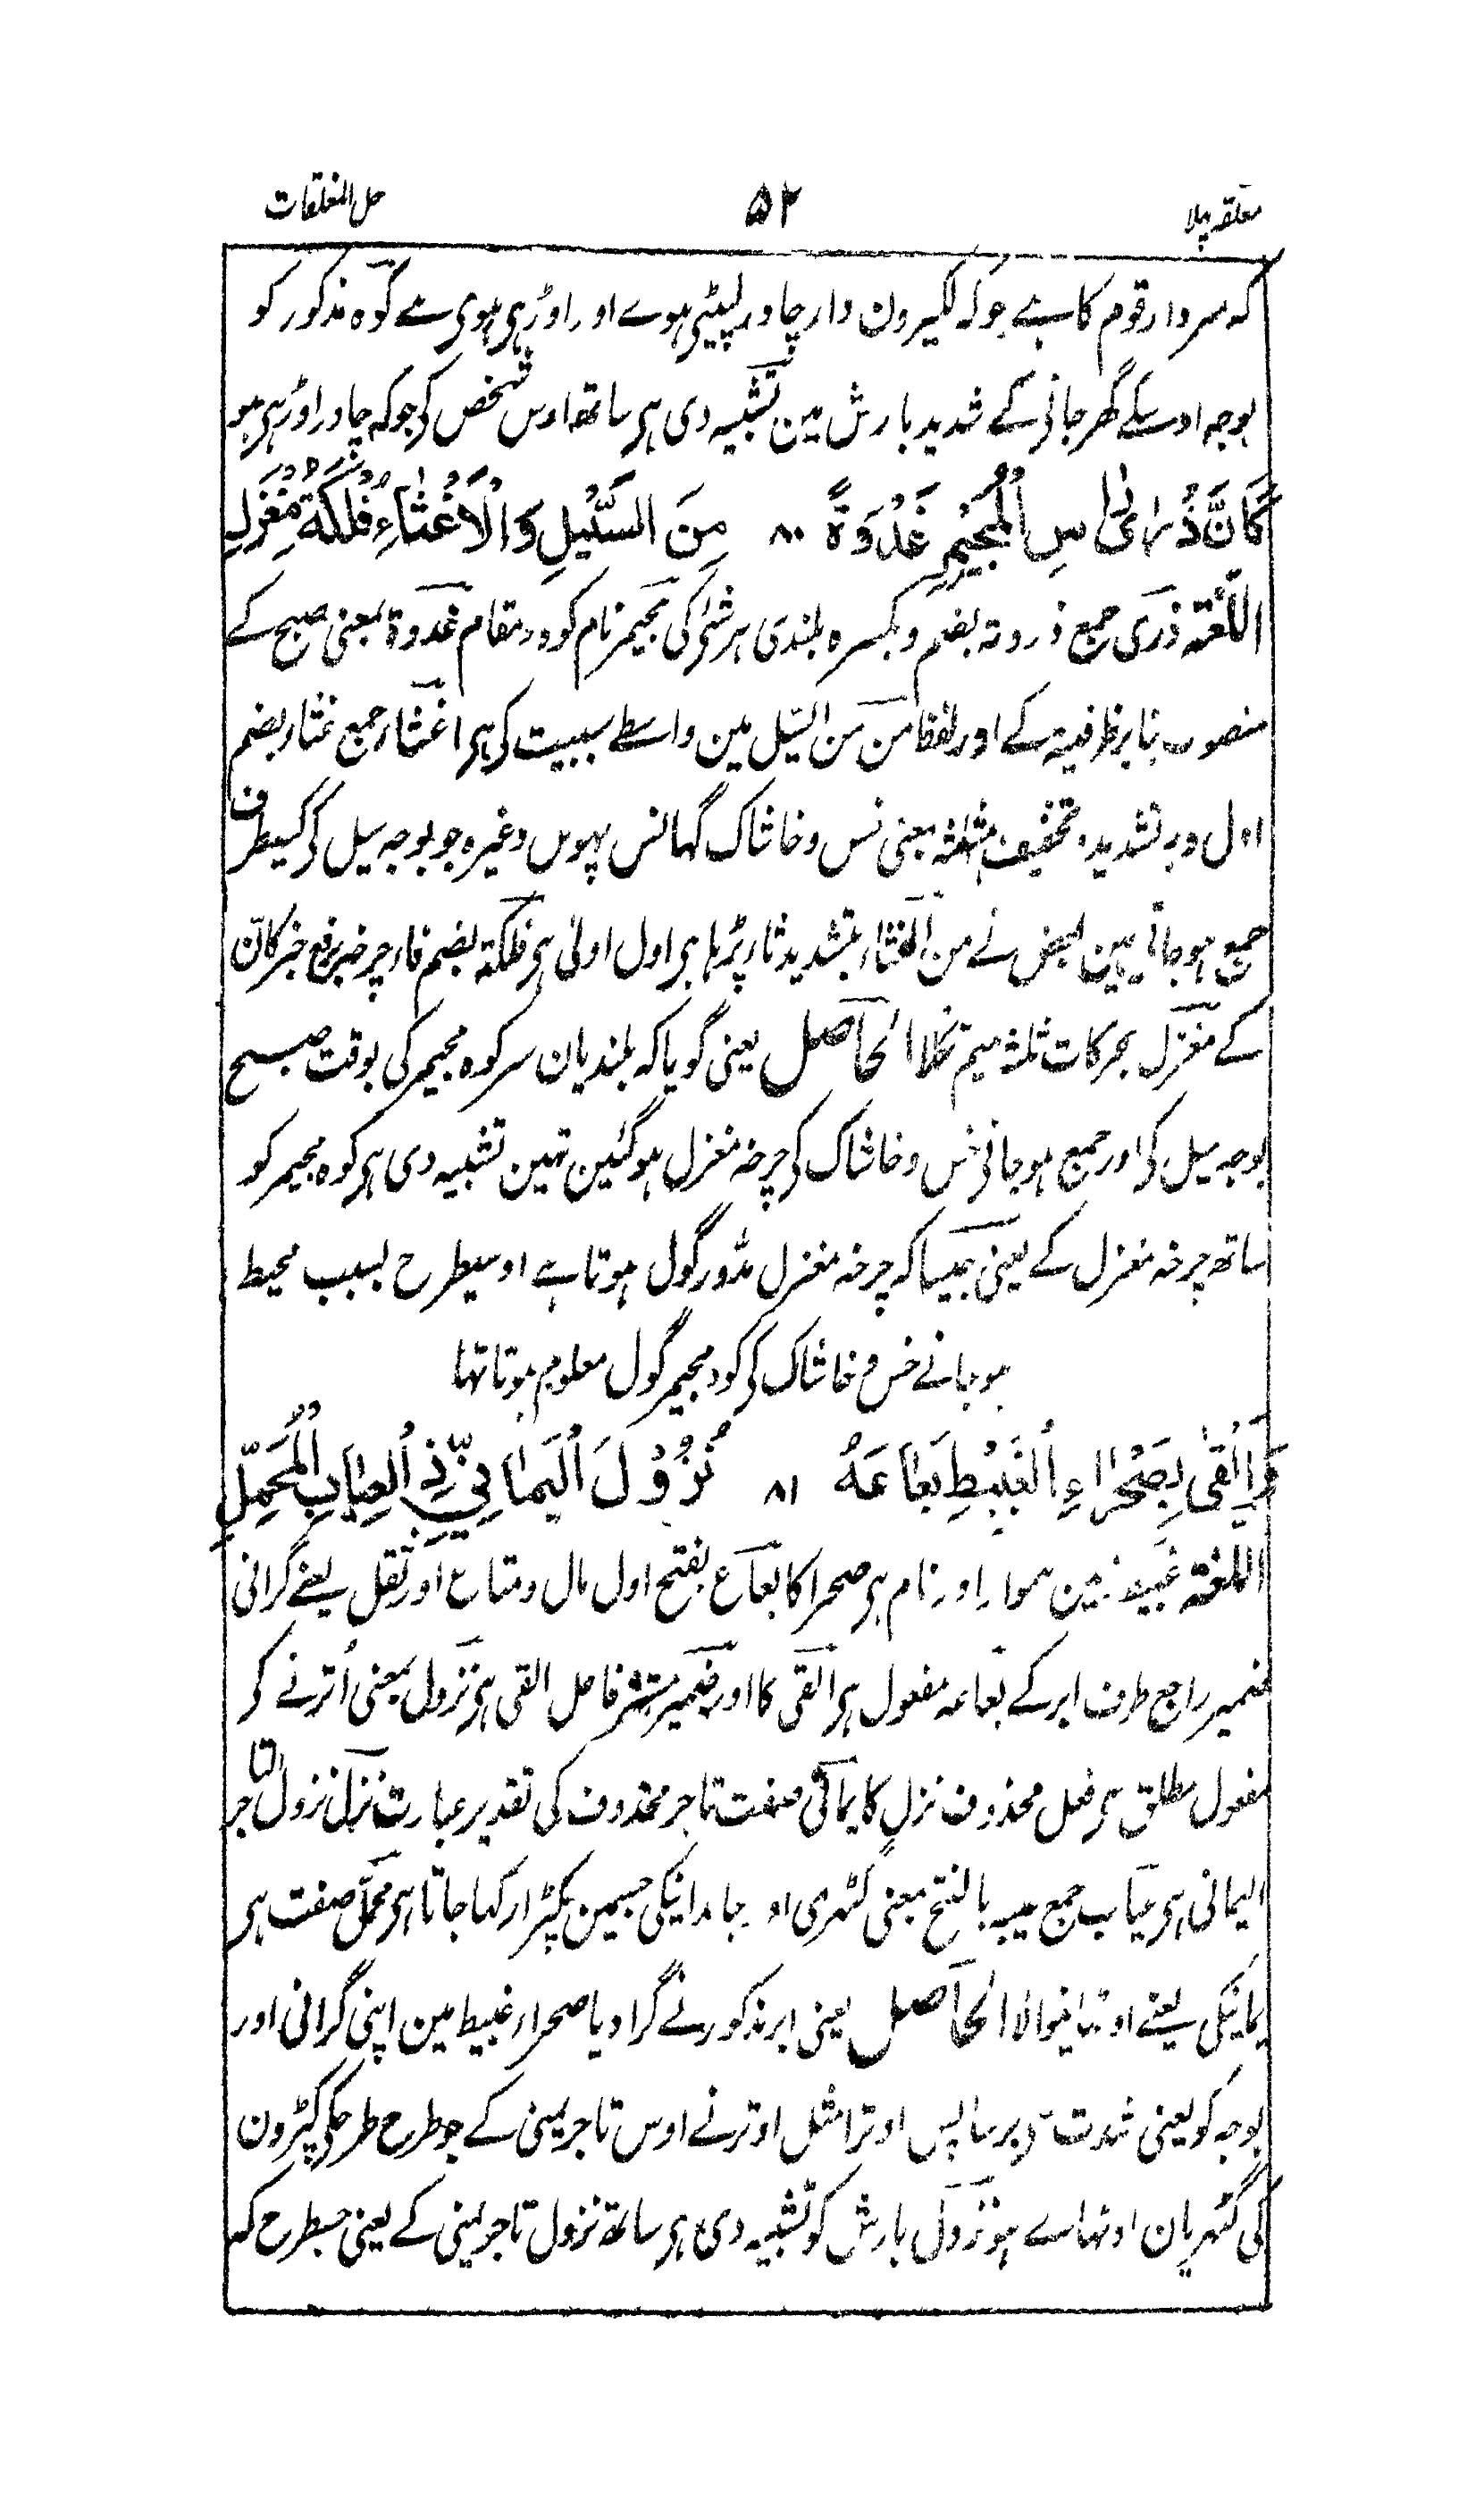 معلقہ پہلا ۵۲ حل المغلقات
کہ سردار قوم کا ہے جو کہ لکیرون دار چادر لپیٹی ہوے اور اوڑہی ہوی ہے کوہ مذکور کو
بوجہ اوسکے گھر جانی کے شدید بارش مین تشبیہ دی ہی ساتھ اوس شخص کی جو کہ چادر اوڑہی ہو
كَأَنَّ ذُرٰى رَاسِ الْمُجَيْمِرِ غُدْوَةً ۸۰ مِنَ السَّيْلِ وَالْاَغْثَاءِ فُلْكَةُ مِغْزَلِ
اللّغۃ ذُرٰی جمع ذروتہ بضم و بکسرہ بلندی ہر شئ کی مجیمر نام کوہ و مقام غدوۃ بمعنی صبح کے
منصوب بنا بر ظرفیۃ کے اور لفظ من من السّیل مین واسطے سببیت کی ہی اغثار جمع غثار بضم
اول و بہ تشدید و تخفیف مثلثہ بمعنی خس و خاشاک گہانس پہوس وغیرہ جو بوجہ سیل کی کسیطرف
جمع ہو جاتی ہین بعض نے من الغثاء بتشدید ثار پڑہا ہی اول اولی ہی فلکۃ بضم فار چرخہ برفع خبر کانّ
کے مغزل بحرکات ثلٰثہ میم تکلا الحاصل یعنی گویا کہ بلندیان سر کوہ مجیمر کی بوقت صبح
بوجہ سیل کی اور جمع ہو جانی خس و خاشاک کی چرخہ مغزل ہو گئین تہین تشبیہ دی ہی کوہ مجیمر کو
ساتھ چرخہ مغزل کے یعنی جیسا کہ چرخہ مغزل مدّور گول ہوتا ہے اوسیطرح بسبب محیط
ہو جانے خس و خاشاک کی کوہ مجیمر گول معلوم ہوتا تہا
وَاَلْقٰى بِصَحْرَاءِ الْغَبِيْطِ بَعَاعَهُ ۸۱ نُزُوْلَ الْيَمَانِيِّ ذِي الْعِيَابِ الْمُحَمَّلِ
اللّغۃ غبیط زمین ہموار اور نام ہی صحرا کا بعاع بفتح اول مال و متاع اور ثقل یعنے گرانی
ضمیر راجع طرف ابر کے بعاعہ مفعول ہی القی کا اور ضمیر مستتر فاعل القی ہی نزول بمعنی اُترنے کی
مفعول مطلق ہی فعل محذوف نزل کا یمانی صفت تاجر محذوف کی تقدیر عبارت نزل نزول التاجر
الیمانی ہی عیاب جمع عیبہ بالفتح بمعنی گٹہری اور جامدانیکی جسمین کپڑا رکہا جاتا ہی محمل صفت ہی
یمانیکی یعنے اوٹہانیوالا الحاصل یعنی ابر مذکور نے گرا دیا صحرار غبیط مین اپنی گرانی اور
بوجہ کو یعنی شدت سے برسا پس اوترا مثل اوترنے اوس تاجر یمنی کے جو طرح طرحکی کپڑون
کی گٹہریان اوٹہاے ہو نزول بارش کو تشبیہ دی ہی ساتھ نزول تاجر یمنی کے یعنی جسطرح کہ